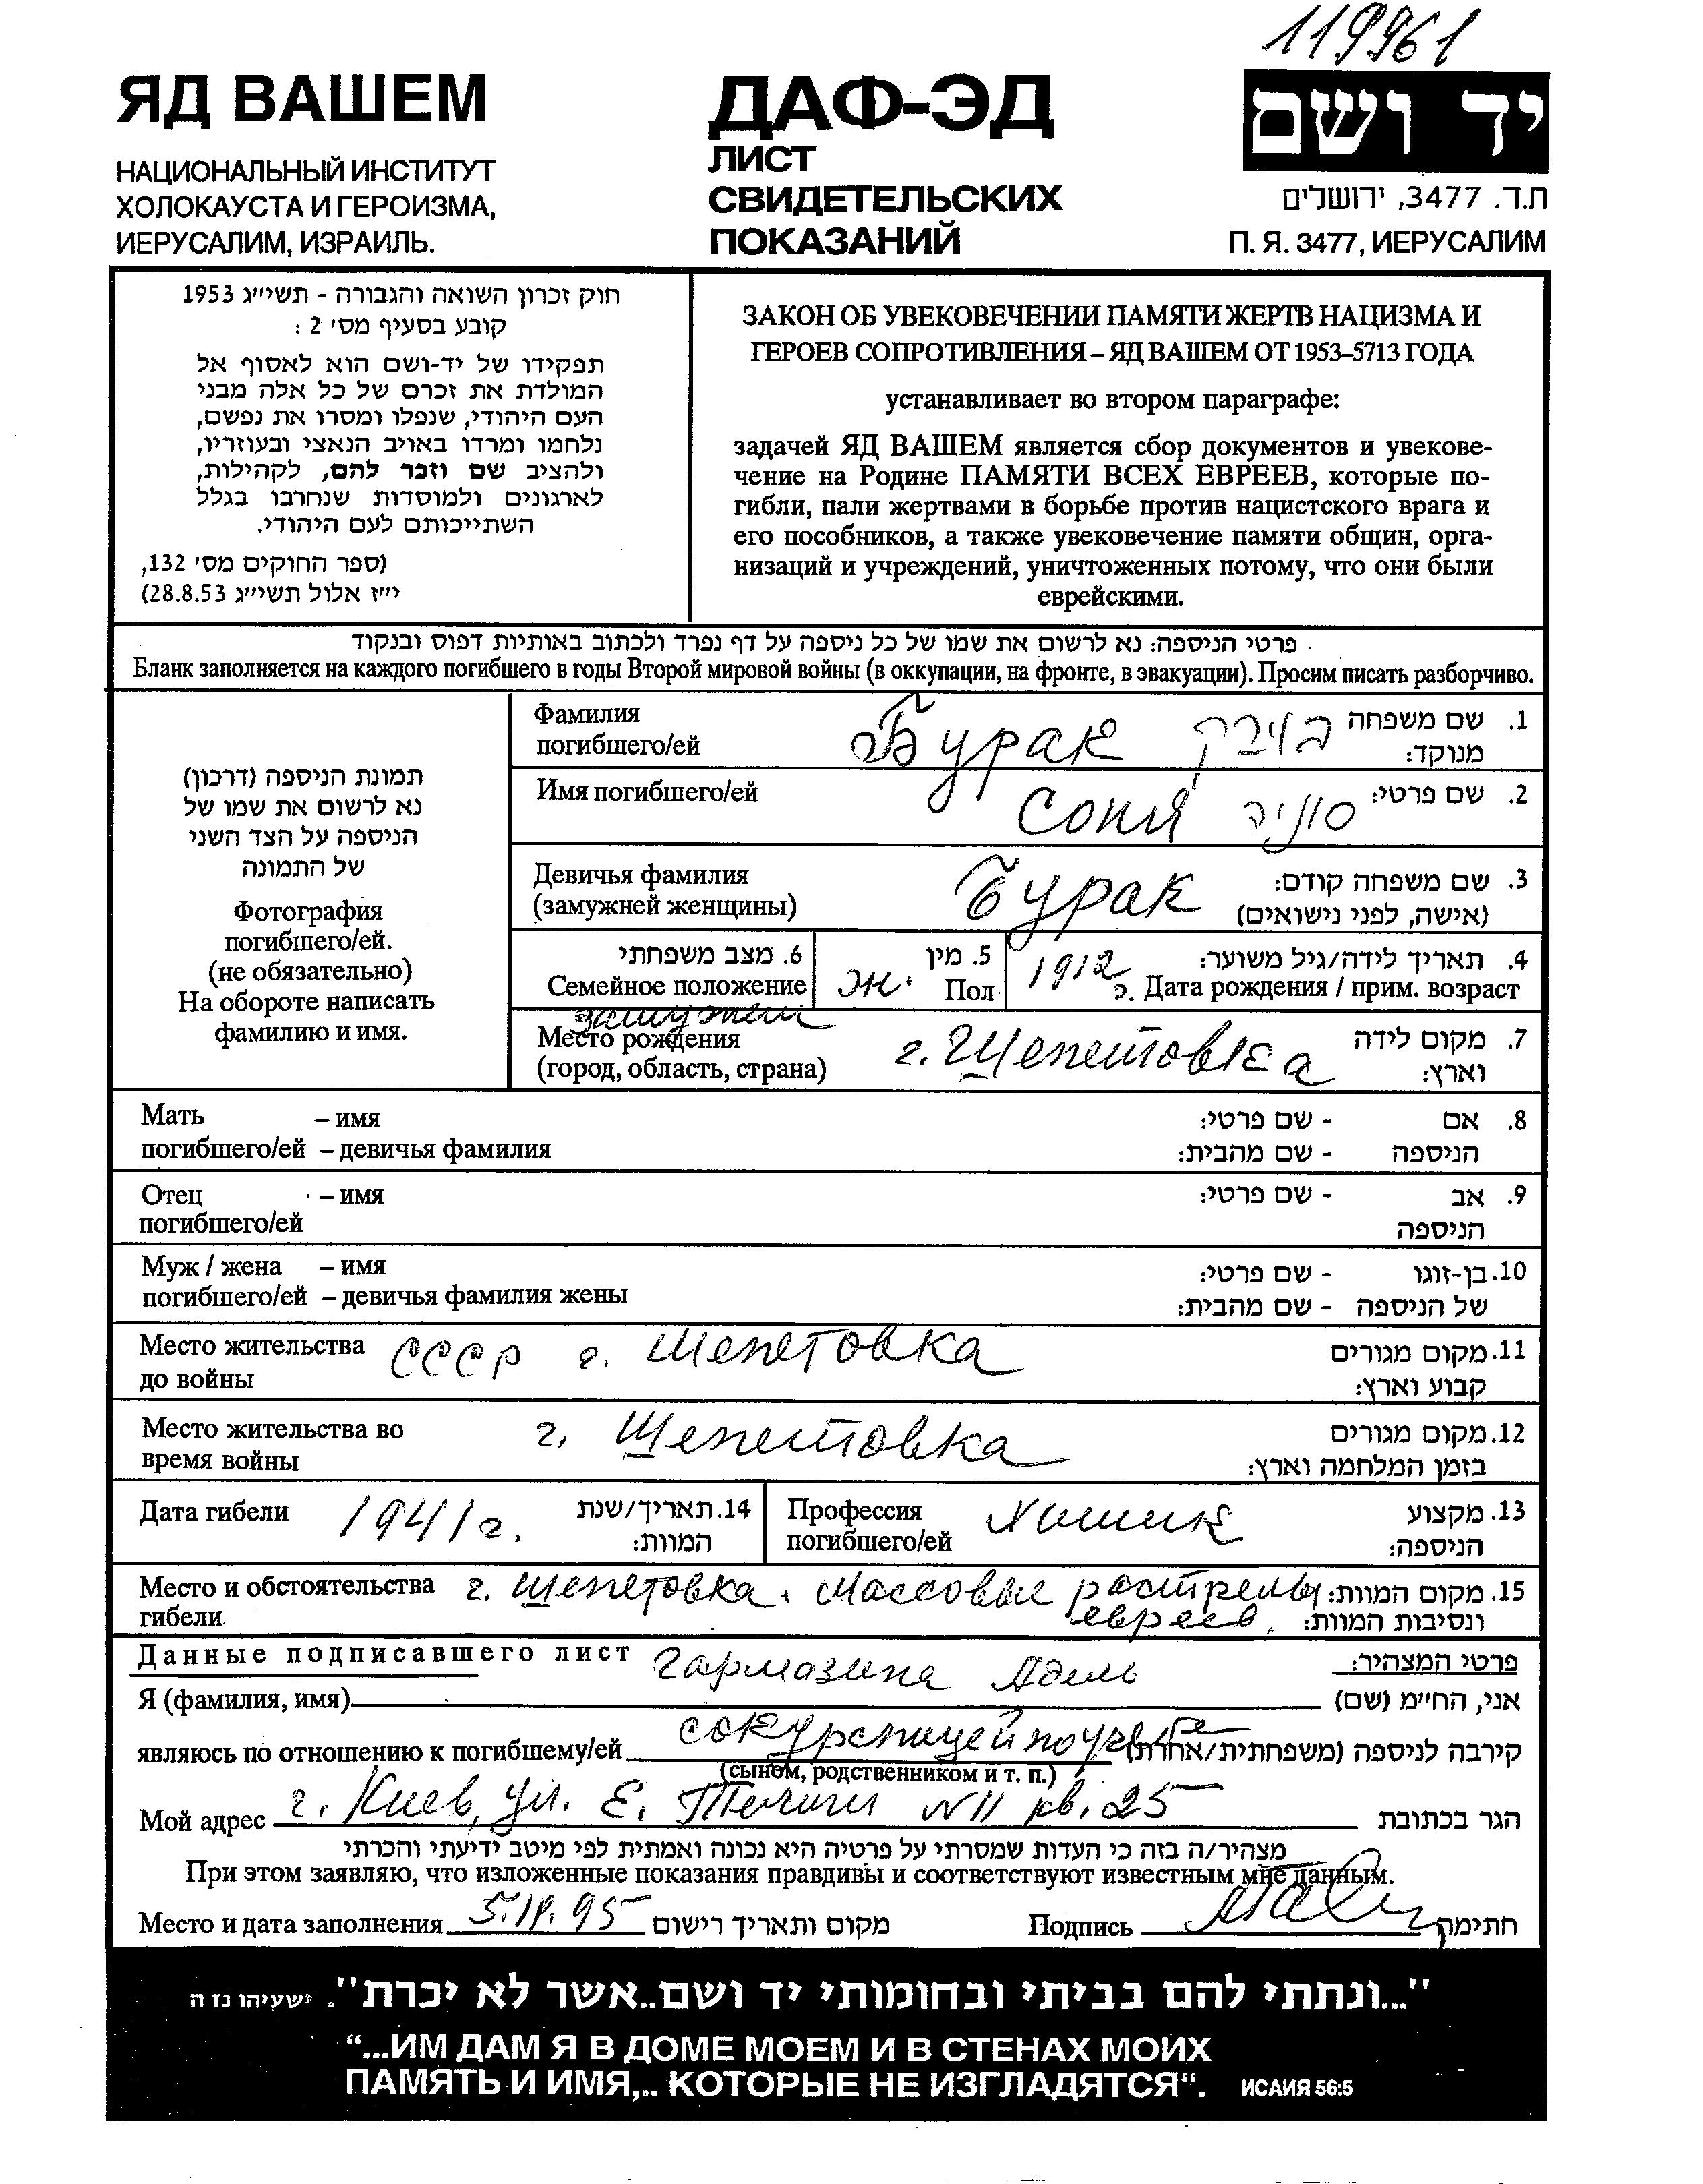 119961
ЯД ВАШЕМ
НАЦИОНАЛЬНЫЙ ИНСТИТУТ
ХОЛОКАУСТА И ГЕРОИЗМА,
ИЕРУСАЛИМ, ИЗРАИЛЬ.
ДАФ-ЭД
ЛИСТ
СВИДЕТЕЛЬСКИХ
ПОКАЗАНИЙ
יד ושם
ת.ד. 3477, ירושלים
П. Я. 3477, ИЕРУСАЛИМ
חוק זכרון השואה והגבורה - תשי״ג 1953
קובע בסעיף מס׳ 2 :
תפקידו של יד-ושם הוא לאסוף אל
המולדת את זכרם של כל אלה מבני
העם היהודי, שנפלו ומסרו את נפשם,
נלחמו ומרדו באויב הנאצי ובעוזריו,
ולהציב שם וזכר להם, לקהילות,
לארגונים ולמוסדות שנחרבו בגלל
השתייכותם לעם היהודי.
(ספר החוקים מס׳ 132,
י״ז אלול תשי״ג 28.8.53)
ЗАКОН ОБ УВЕКОВЕЧЕНИИ ПАМЯТИ ЖЕРТВ НАЦИЗМА И
ГЕРОЕВ СОПРОТИВЛЕНИЯ – ЯД ВАШЕМ ОТ 1953–5713 ГОДА
устанавливает во втором параграфе:
задачей ЯД ВАШЕМ является сбор документов и увекове-
чение на Родине ПАМЯТИ ВСЕХ ЕВРЕЕВ, которые по-
гибли, пали жертвами в борьбе против нацистского врага и
его пособников, а также увековечение памяти общин, орга-
низаций и учреждений, уничтоженных потому, что они были
еврейскими.
פרטי הניספה: נא לרשום את שמו של כל ניספה על דף נפרד ולכתוב באותיות דפוס ובנקוד
Бланк заполняется на каждого погибшего в годы Второй мировой войны (в оккупации, на фронте, в эвакуации). Просим писать разборчиво.
תמונת הניספה (דרכון)
נא לרשום את שמו של
הניספה על הצד השני
של התמונה
Фотография
погибшего/ей.
(не обязательно)
На обороте написать
фамилию и имя.
Фамилия Бурак בורק 1. שם משפחה
погибшего/ей מנוקד:
Имя погибшего/ей Соня סוניה 2. שם פרטי:
Девичья фамилия Бурак 3. שם משפחה קודם:
(замужней женщины) (אישה, לפני נישואים)
6. מצב משפחתי 5. מין 4. תאריך לידה/גיל משוער:
Семейное положение замужем ж. Пол 1912 г. Дата рождения / прим. возраст
Место рождения г. Шепетовка 7. מקום לידה
(город, область, страна) וארץ:
Мать – имя - שם פרטי: 8. אם
погибшего/ей – девичья фамилия - שם מהבית: הניספה
Отец – имя - שם פרטי: 9. אב
погибшего/ей הניספה
Муж / жена – имя - שם פרטי: 10. בן-זוגו
погибшего/ей – девичья фамилия жены - שם מהבית: של הניספה
Место жительства СССР г. Шепетовка 11. מקום מגורים
до войны קבוע וארץ:
Место жительства во г. Шепетовка 12. מקום מגורים
время войны בזמן המלחמה וארץ:
Дата гибели 1941 г. 14. תאריך/שנת המוות:
Профессия погибшего/ей Химик 13. מקצוע הניספה:
Место и обстоятельства г. Шепетовка. Массовые растрелы 15. מקום המוות:
гибели евреев. ונסיבות המוות:
Данные подписавшего лист פרטי המצהיר:
Я (фамилия, имя) Гармазина Адель אני, החי״מ (שם)
являюсь по отношению к погибшему/ей сокурсницей по קירבה לניספה (משפחתית/אחרת)
(сыном, родственником и т. п.)
Мой адрес г. Киев, ул. Е. Телиги N 11 кв. 25 הגר בכתובת
מצהיר/ה בזה כי העדות שמסרתי על פרטיה היא נכונה ואמתית לפי מיטב ידיעתי והכרתי
При этом заявляю, что изложенные показания правдивы и соответствуют известным мне данным.
Место и дата заполнения מקום ותאריך רישום Подпись חתימה
"...ונתתי להם בביתי ובחומותי יד ושם..אשר לא יכרת". ישעיהו נז ה
“...ИМ ДАМ Я В ДОМЕ МОЕМ И В СТЕНАХ МОИХ
ПАМЯТЬ И ИМЯ,.. КОТОРЫЕ НЕ ИЗГЛАДЯТСЯ“. ИСАИЯ 56:5